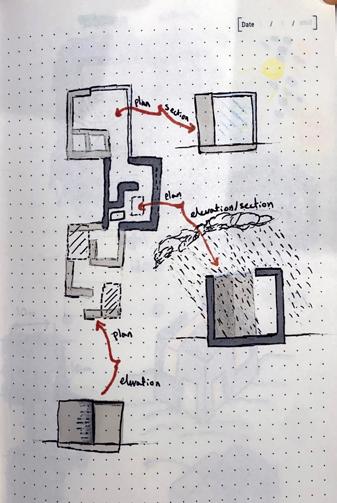 Date / /
plan
section
plan
elevation/section
plan
elevation